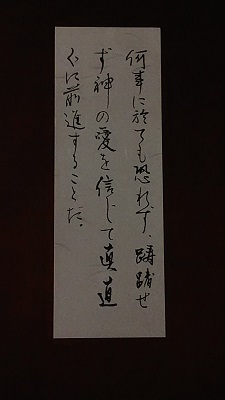 何事に於ても恐れず、躊躇せ
ず神の愛を信じて真直
ぐに前進することだ。